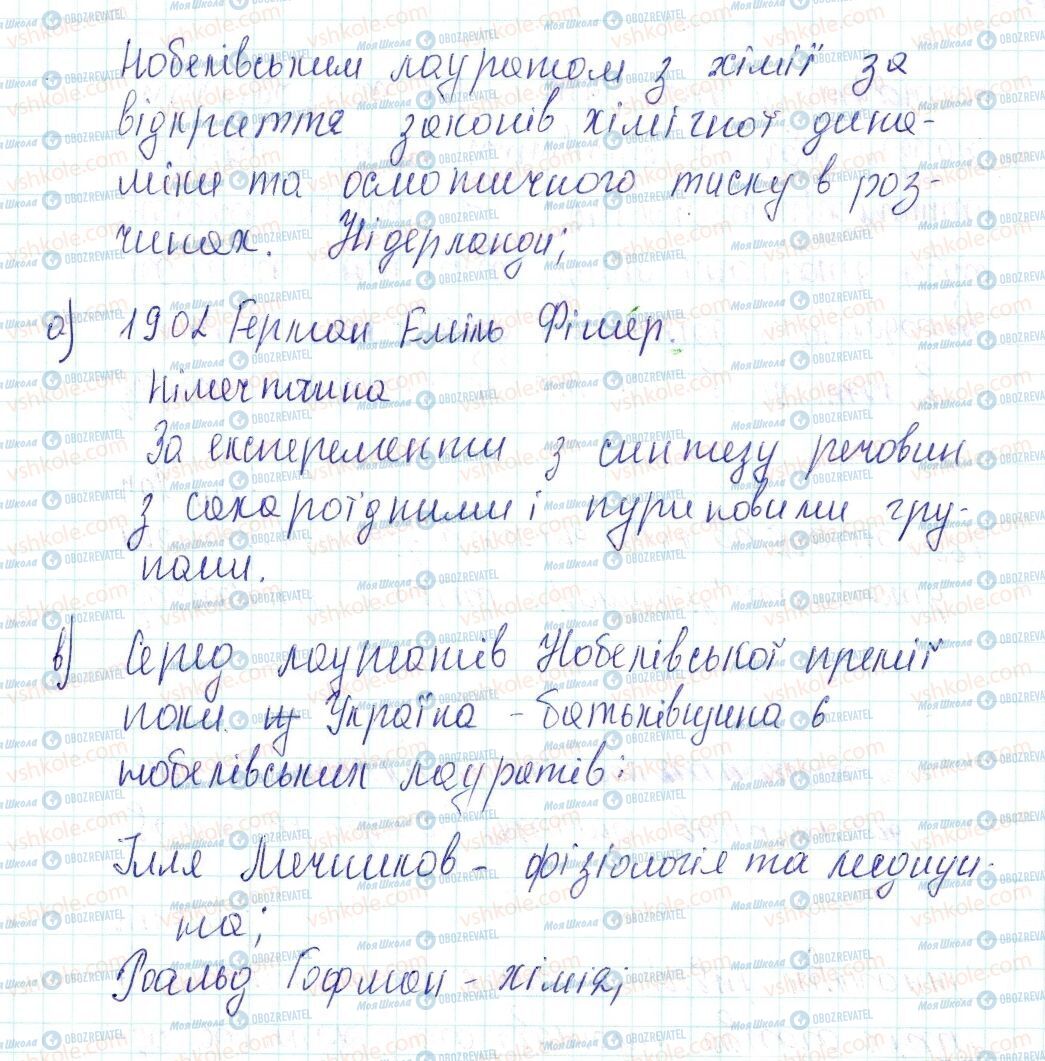 Нобелівським лауратом з хімії за
відкриття законів хімічної дина-
міки та осмотичного тиску в роз-
чинах. Нідерланди;
а) 1902 Герман Еміль Фішер.
Німеччина
За експеременти з синтезу речовин
з сахароїдними і пуриновими гру-
пами.
в) Серед лауратів Нобелівської премії
поки Україна - батьківщина 6
нобелівських лауратів:
Ілля Мечников - фізіологія та медици-
на;
Роальд Гофман - хімія;